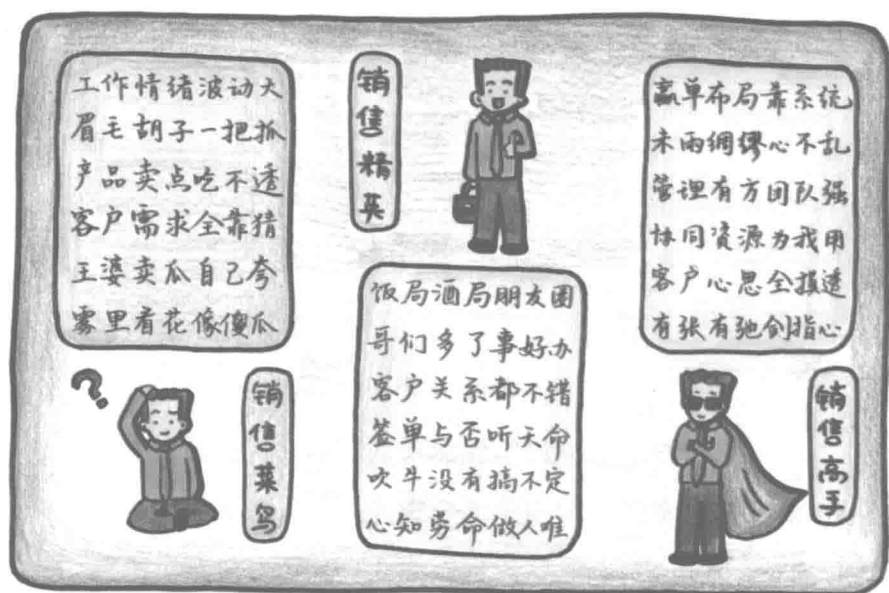 工作情绪波动大
眉毛胡子一把抓
产品卖点吃不透
客户需求全靠猜
王婆卖瓜自己夸
雾里看花像傻瓜
销售菜鸟
销售精英
饭局酒局朋友圈
哥们多了事好办
客户关系都不错
签单与否听天命
吹牛没有搞不定
心知劳命做人难
赢单布局靠系统
未雨绸缪心不乱
管理有方团队强
协同资源为我用
客户心思全摸透
有张有弛剑指心
销售高手
?